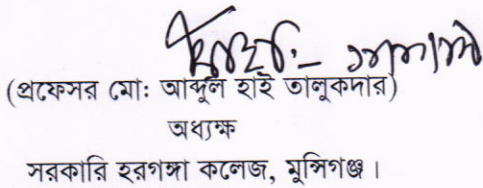 (প্রফেসর মো: আব্দুল হাই তালুকদার)
অধ্যক্ষ
সরকারি হরগঙ্গা কলেজ, মুন্সিগঞ্জ।